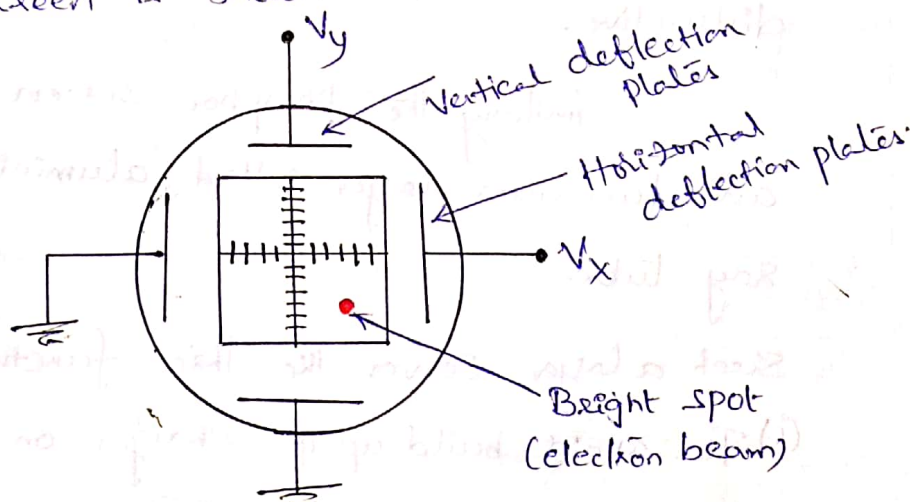 Vy
Vertical deflection
plates
Horizontal
deflection plates.
Vx
Bright spot
(electron beam)